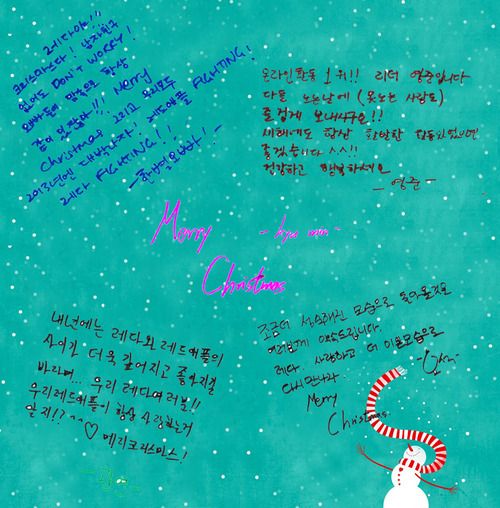 크리스마스다! 남자친구
없어도 DON'T WORRY!
오빠들이 마음으로 항상
같이 있잖아!!! Merry
Christmas 그리고 우리모두
2013년엔 대박나자! 레드애플 FIGHTING!
레다 FIGHTING!!
온라인활동 1위!! 리더 영준입니다
다들 노는날에 (못노는 사람도)
즐겁게 보내시구요!!
새해에도 항상 활동되었으면
좋겠습니다 ^.^!!
건강하고 행복하세요
- 영준 -
Merry - hyo min -
Christmas
내년에는 레다와 레드애플의
사이가 더욱 깊어지고 좋아지길
바라며... 우리 레다여러분!!
우리레드애플이 항상 사랑하는거
알지!? ^^♡ 메리크리스마스!
조금더 성숙해진 모습으로 돌아올것을
여러분께 약속드립니다.
레다. 사랑하고 더 이쁜모습으로
다시만나자.
Merry
Christmas.